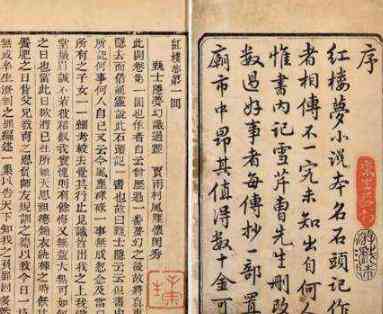 序
紅樓夢小說本名石頭記作
者相傳不一究未知出自何人
惟書内記雪芹曹先生刪改
數過好事者每傳抄一部置
廟市中昂其值得數十金可
紅樓夢第一回
甄士隱夢幻識通靈 賈雨村風塵懷閨秀
此開卷第一回也作者自云曾歷過一番夢幻之後故將真事
隱去而借通靈說此石頭記一書也故曰甄士隱云云但書中
所記何事何人自己又云今風塵碌碌一事無成忽念及當日
所有之女子一一細考較去覺其行止見識皆出我之上我堂
堂鬚眉誠不若彼裙釵我實愧則有餘悔又無益大無可如何
之日也當此日欲將已往所賴天恩祖德錦衣紈袴之時飫甘
饜肥之日背父兄教育之恩負師友規訓之德以致今日一技
無成半生潦倒之罪編述一集以告天下知我之負罪固多